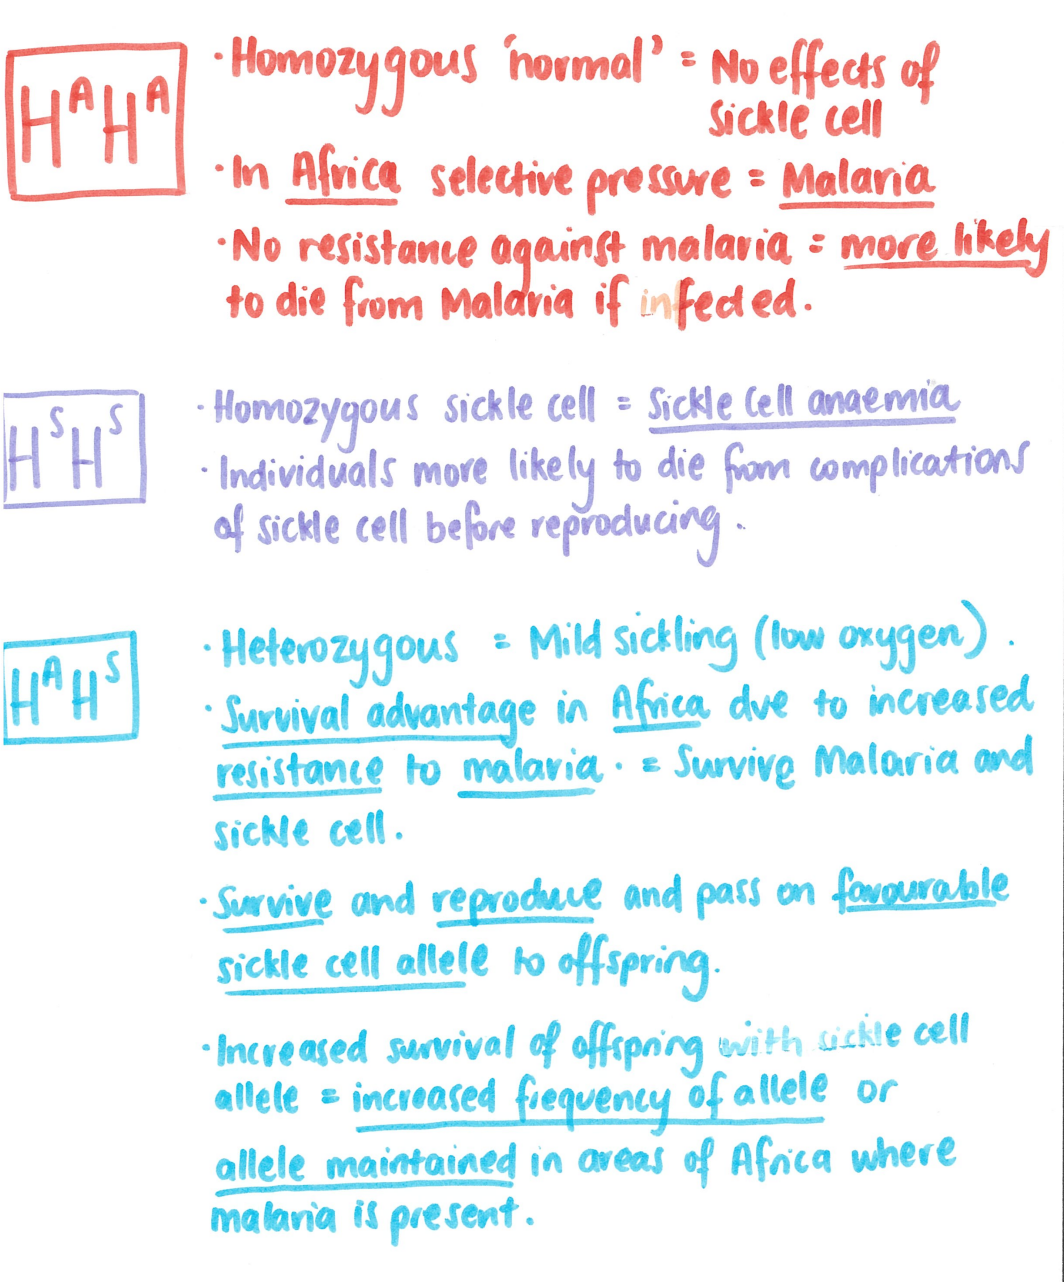 HᴬHᴬ
·Homozygous 'normal' = No effects of
sickle cell
·In Africa selective pressure = Malaria
·No resistance against malaria = more likely
to die from Malaria if infected.
HˢHˢ
·Homozygous sickle cell = Sickle Cell anaemia
·Individuals more likely to die from complications
of sickle cell before reproducing.
HᴬHˢ
·Heterozygous = Mild sickling (low oxygen).
·Survival advantage in Africa due to increased
resistance to malaria. = Survive Malaria and
sickle cell.
·Survive and reproduce and pass on favourable
sickle cell allele to offspring.
·Increased survival of offspring with sickle cell
allele = increased frequency of allele or
allele maintained in areas of Africa where
malaria is present.